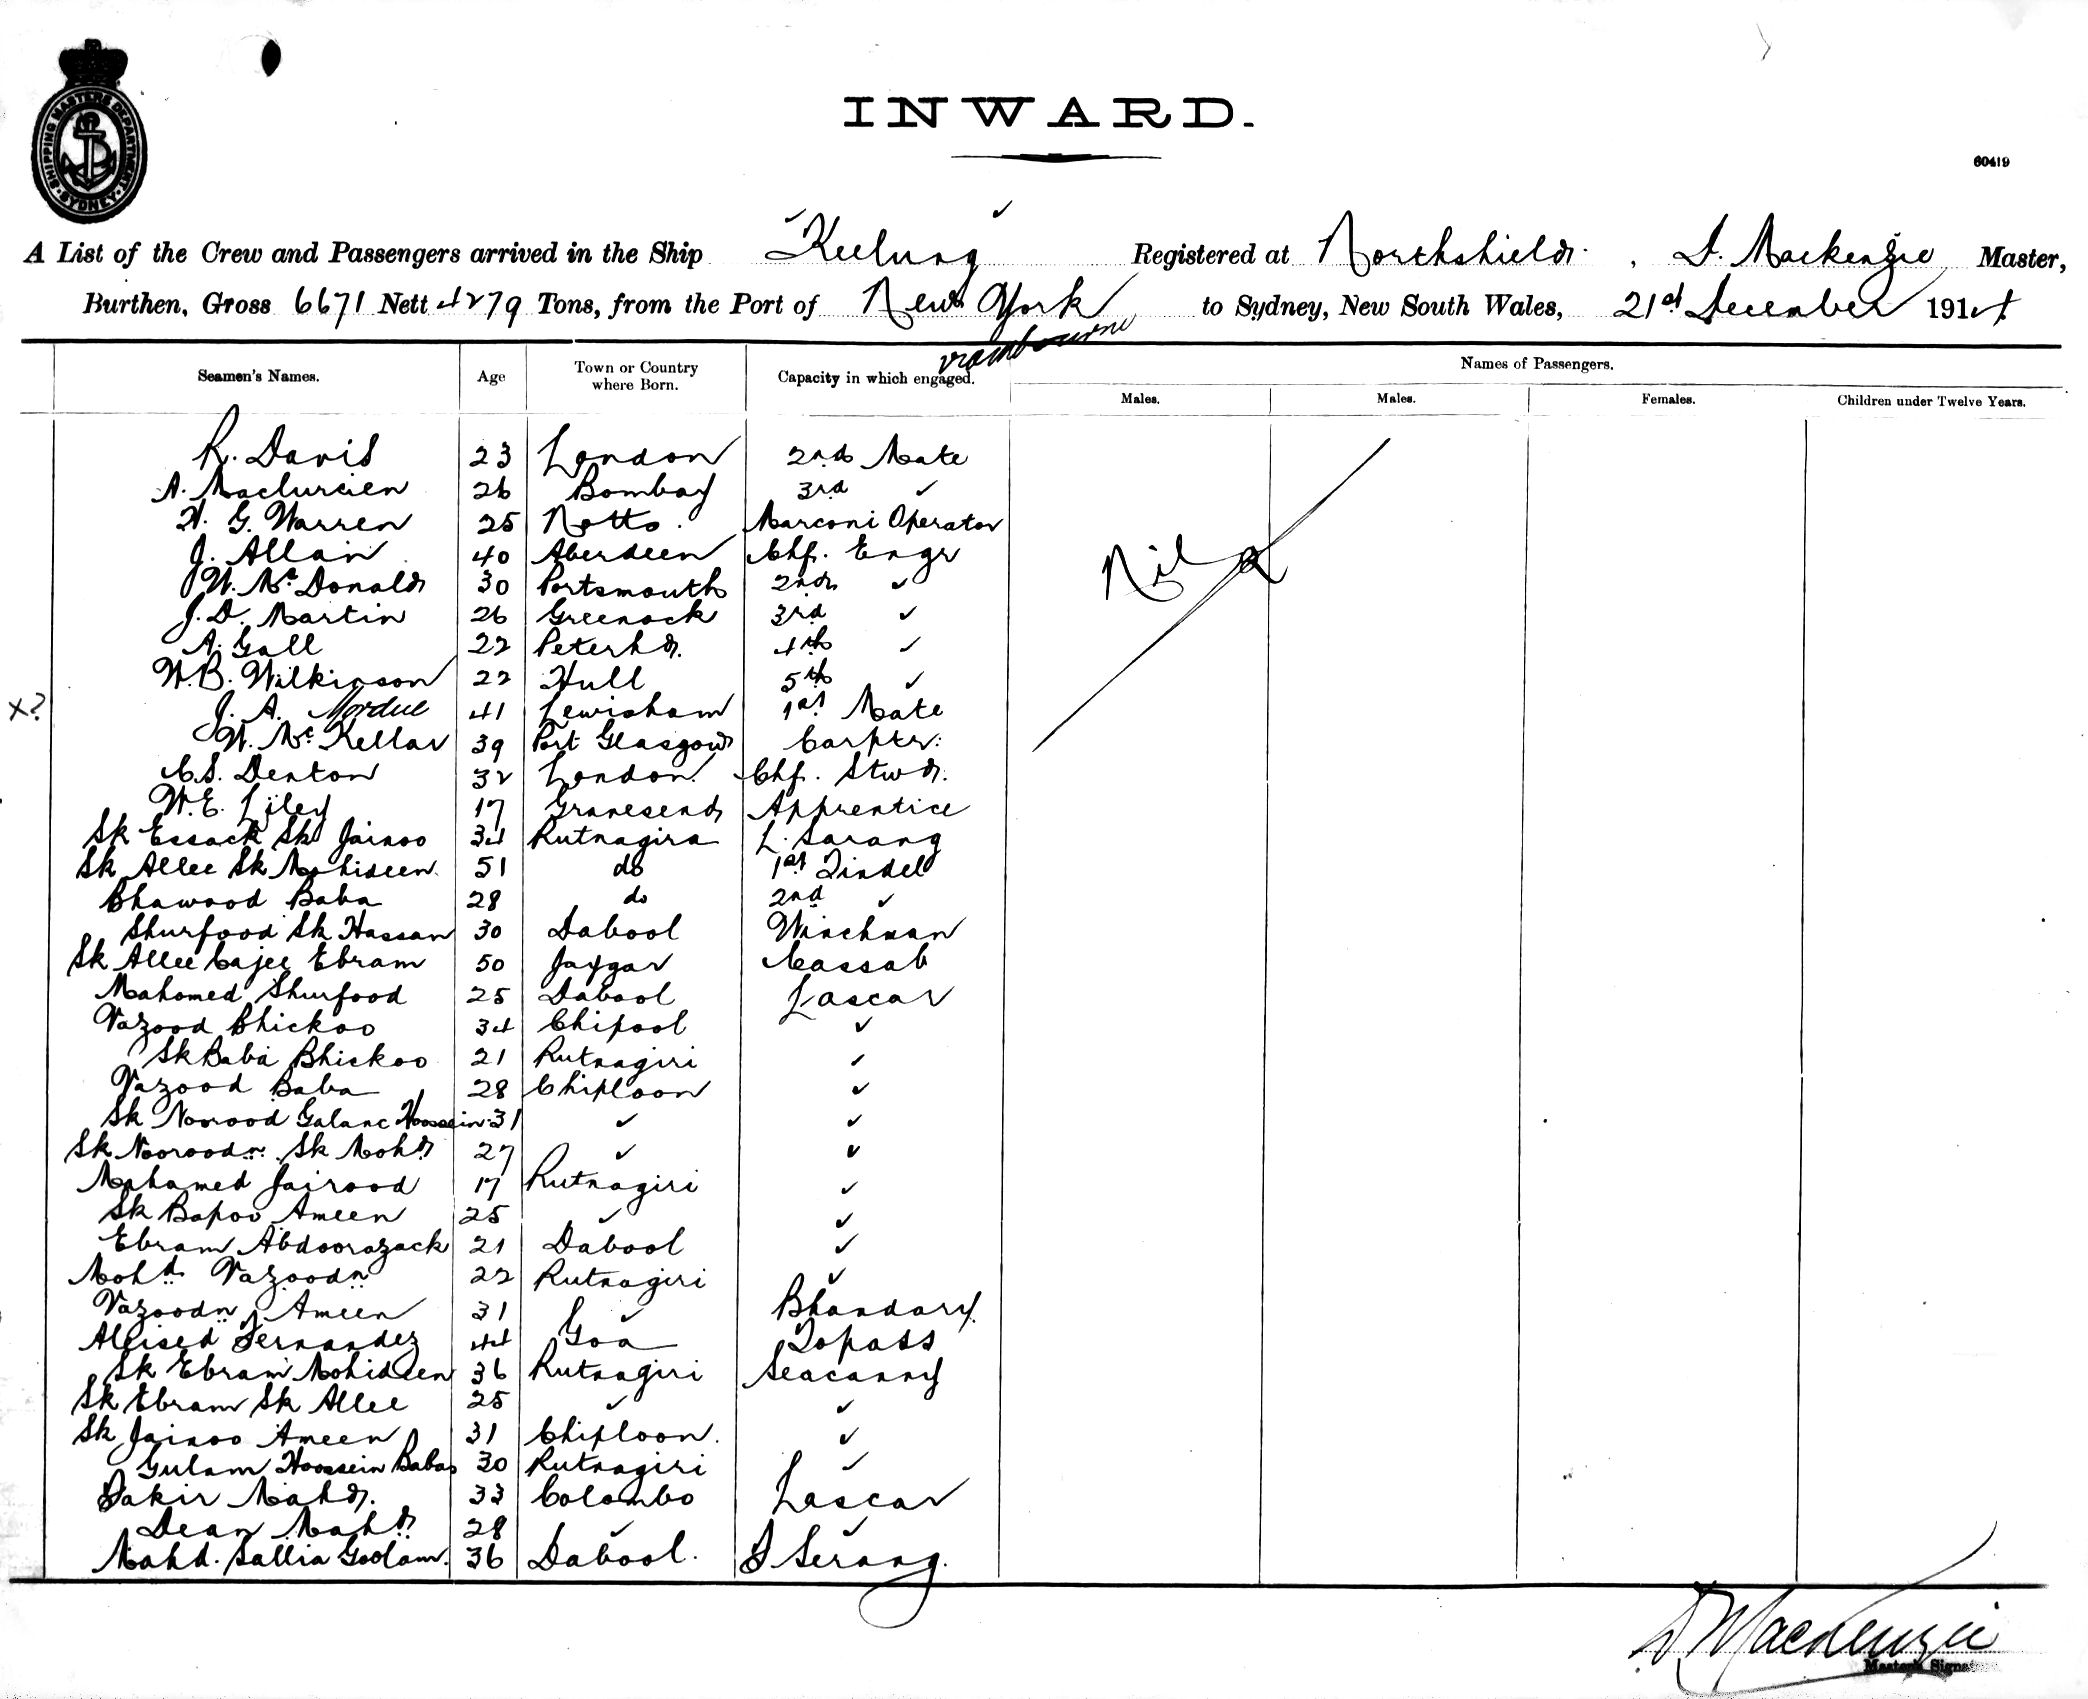 SHIPPING MASTERS DEPARTMENT
SYDNEY
INWARD.
60419
A List of the Crew and Passengers arrived in the Ship Keelung Registered at Northshields. , D. Mackenzie Master,
Burthen, Gross 6671 Nett 4279 Tons, from the Port of New York to Sydney, New South Wales, 21st December 1914
Seamen's Names. Age Town or Country where Born. Capacity in which engaged. Names of Passengers.
Males. Males. Females. Children under Twelve Years.
R. Davis 23 London 2nd Mate
A. 26 Bombay 3rd ✓
H. G. Warren 25 Notts. Marconi Operator
J. Allan 40 Aberdeen Chf. Engr
Nil
W. Mc Donald 30 Portsmouth 2nd ✓
J. D. Martin 26 Greenock 3rd ✓
A. Gall 22 Peterhd. 4th ✓
W. B. Wilkinson 22 Hull 5th ✓
x? J. A. Mordue 41 Lewisham 1st Mate
W. Mc Kellar 39 Port Glasgow Carptr:
C. S. Denton 32 London. Chf. Stwd.
W. E. Liley 17 Gravesend Apprentice
Sk Essack Sk Jainoo 34 Rutnagira L. Sarang
Sk Allee Sk Mohideen 51 do 1st Tindel
Bhawood Baba 28 do 2nd ✓
Shurfood Sk Hassan 30 Dabool Winchman
Sk Allee Cajee Ebram 50 Jaygar Cassab
Mahomed Shurfood 25 Dabool Lascar
Vazood Bhickoo 34 Chipool ✓
Sk Baba Bhickoo 21 Rutnagiri ✓
Vazood Baba 28 Chiploon ✓
Sk Noorood Galanc Hoossein 31 ✓ ✓
Sk Nooroodn Sk Mohd 27 ✓ ✓
Mahamed Jairood 17 Rutnagiri ✓
Sk Bapoo Ameen 25 ✓ ✓
Ebram Abdoorazack 21 Dabool ✓
Mohd Vazoodn 22 Rutnagiri ✓
Vazoodn Ameen 31 ✓ Bhandary
Fernandez 44 Goa Topass
Sk Ebram Mohideen 36 Rutnagiri Seacanny
Sk Ebram Sk Allee 25 ✓ ✓
Sk Jainoo Ameen 31 Chiploon. ✓
Gulam Hoossein Baba 30 Rutnagiri ✓
Fakir Mahd. 33 Colombo Lascar
Dean Mahd 28 ✓ ✓
Mahd. Sallia Goolam. 36 Dabool. D Serang.
D Mackenzie
Master's Signa